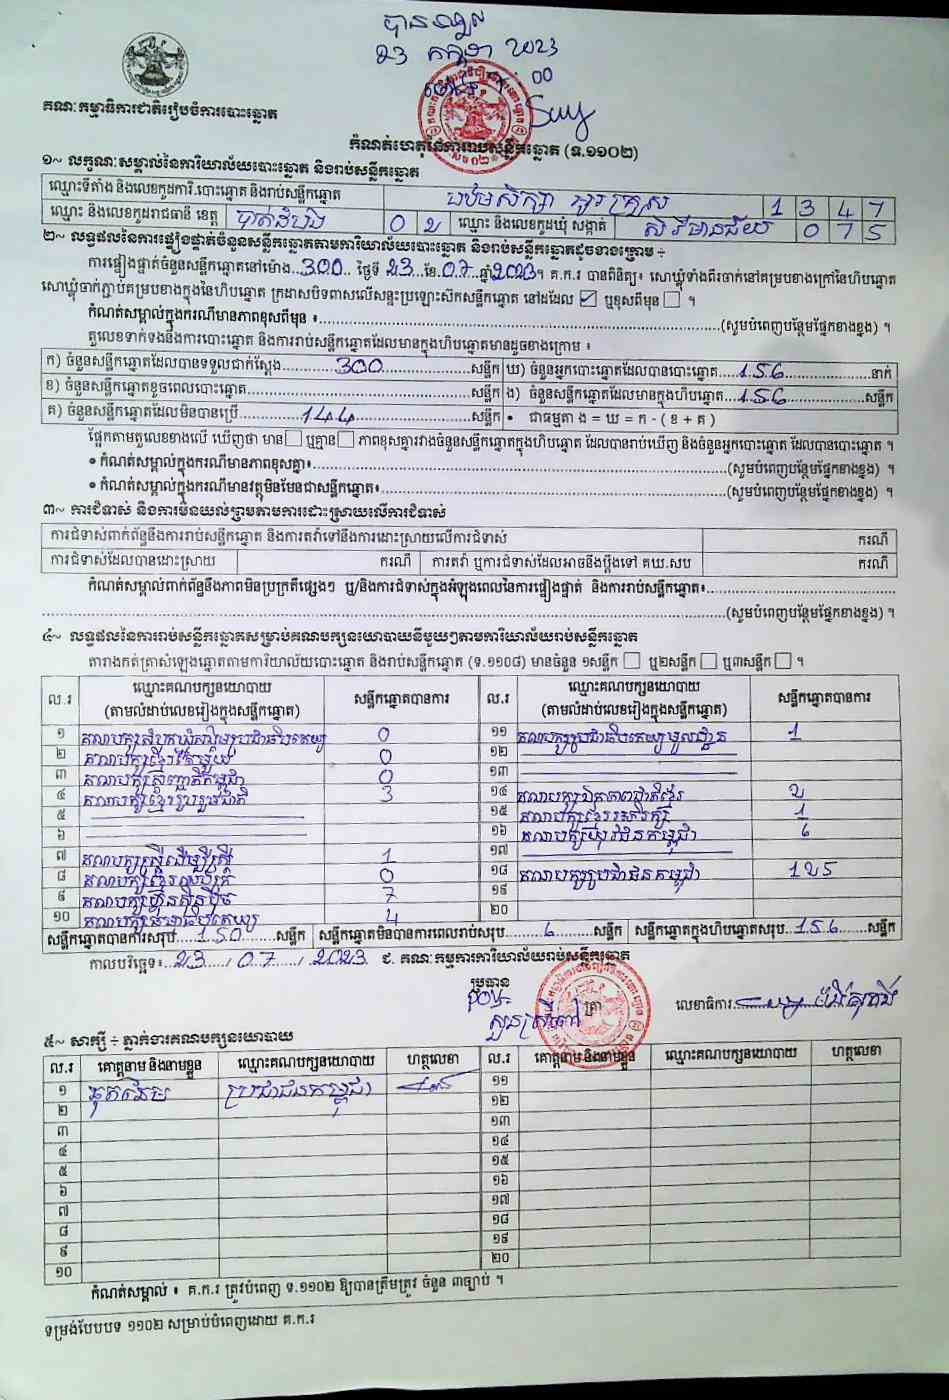 បានឃើញ
23 កក្កដា 2023
គណៈកម្មាធិការជាតិរៀបចំការបោះឆ្នោត
កំណត់ហេតុនៃការរាប់សន្លឹកឆ្នោត (ទ.១១០២)
១~ លក្ខណៈសម្គាល់នៃការិយាល័យបោះឆ្នោត និងរាប់សន្លឹកឆ្នោត
ឈ្មោះទីតាំង និងលេខកូដការិ.បោះឆ្នោត និងរាប់សន្លឹកឆ្នោត បឋមសិក្សា អូរគ្រួស 1 3 4 7
ឈ្មោះ និងលេខកូដរាជធានី ខេត្ត បាត់ដំបង 0 2 ឈ្មោះ និងលេខកូដឃុំ សង្កាត់ សិរីមានជ័យ 0 7 5
២~ លទ្ធផលនៃការផ្ទៀងផ្ទាត់ចំនួនសន្លឹកឆ្នោតតាមការិយាល័យបោះឆ្នោត និងរាប់សន្លឹកឆ្នោតដូចខាងក្រោម ÷
ការផ្ទៀងផ្ទាត់ចំនួនសន្លឹកឆ្នោតនៅម៉ោង...300... ថ្ងៃទី 23 ខែ 07 ឆ្នាំ 2023។ គ.ក.រ បានពិនិត្យ៖ សោឃ្លុំទាំងពីរចាក់នៅគម្របខាងក្រៅនៃហិបឆ្នោត
សោឃ្លុំចាក់ភ្ជាប់គម្របខាងក្នុងនៃហិបឆ្នោត ក្រដាសបិទពាសលើសន្ទះប្រឡោះស៊កសន្លឹកឆ្នោត នៅដដែល ☑ ឬខុសពីមុន ☐ ។
កំណត់សម្គាល់ក្នុងករណីមានភាពខុសពីមុន ៖........(សូមបំពេញបន្ថែមផ្នែកខាងខ្នង) ។
តួលេខទាក់ទងនឹងការបោះឆ្នោត និងការរាប់សន្លឹកឆ្នោតដែលមានក្នុងហិបឆ្នោតមានដូចខាងក្រោម ៖
ក) ចំនួនសន្លឹកឆ្នោតដែលបានទទួលជាក់ស្តែង 300 សន្លឹក ឃ) ចំនួនអ្នកបោះឆ្នោតដែលបានបោះឆ្នោត 156 នាក់
ខ) ចំនួនសន្លឹកឆ្នោតខូចពេលបោះឆ្នោត........សន្លឹក ង) ចំនួនសន្លឹកឆ្នោតដែលមានក្នុងហិបឆ្នោត 156 សន្លឹក
គ) ចំនួនសន្លឹកឆ្នោតដែលមិនបានប្រើ 144 សន្លឹក • ជាធម្មតា ង = ឃ = ក - ( ខ + គ )
ផ្អែកតាមតួលេខខាងលើ ឃើញថា មាន ☐ ឬគ្មាន ☐ ភាពខុសគ្នារវាងចំនួនសន្លឹកឆ្នោតក្នុងហិបឆ្នោត ដែលបានរាប់ឃើញ និងចំនួនអ្នកបោះឆ្នោត ដែលបានបោះឆ្នោត ។
• កំណត់សម្គាល់ក្នុងករណីមានភាពខុសគ្នា៖........(សូមបំពេញបន្ថែមផ្នែកខាងខ្នង) ។
• កំណត់សម្គាល់ក្នុងករណីមានវត្ថុមិនមែនជាសន្លឹកឆ្នោត៖........(សូមបំពេញបន្ថែមផ្នែកខាងខ្នង) ។
៣~ ការជំទាស់ និងការមិនយល់ព្រមតាមការដោះស្រាយលើការជំទាស់
ការជំទាស់ពាក់ព័ន្ធនឹងការរាប់សន្លឹកឆ្នោត និងការតវ៉ាទៅនឹងការដោះស្រាយលើការជំទាស់ ករណី
ការជំទាស់ដែលបានដោះស្រាយ ករណី ការតវ៉ា ឬការជំទាស់ដែលអាចនឹងប្តឹងទៅ គឃ.សប ករណី
កំណត់សម្គាល់ពាក់ព័ន្ធនឹងភាពមិនប្រក្រតីផ្សេងៗ ឬ/និងការជំទាស់ក្នុងអំឡុងពេលនៃការផ្ទៀងផ្ទាត់ និងការរាប់សន្លឹកឆ្នោត៖........
........(សូមបំពេញបន្ថែមផ្នែកខាងខ្នង) ។
៤~ លទ្ធផលនៃការរាប់សន្លឹកឆ្នោតសម្រាប់គណបក្សនយោបាយនីមួយៗតាមការិយាល័យរាប់សន្លឹកឆ្នោត
តារាងកត់ត្រាសំឡេងឆ្នោតតាមការិយាល័យបោះឆ្នោត និងរាប់សន្លឹកឆ្នោត (ទ.១១០៨) មានចំនួន ១សន្លឹក ☐ ឬ២សន្លឹក ☐ ឬ៣សន្លឹក ☐ ។
ល.រ ឈ្មោះគណបក្សនយោបាយ (តាមលំដាប់លេខរៀងក្នុងសន្លឹកឆ្នោត) សន្លឹកឆ្នោតបានការ ល.រ ឈ្មោះគណបក្សនយោបាយ (តាមលំដាប់លេខរៀងក្នុងសន្លឹកឆ្នោត) សន្លឹកឆ្នោតបានការ
១ គណបក្សសំបុកឃ្មុំសង្គមប្រជាធិបតេយ្យ 0
២ គណបក្សខ្មែរតែមួយ 0
៣ គណបក្ស កម្ពុជា 0
៤ គណបក្សខ្មែររួបរួមជាតិ 3
៥
៦
៧ គណបក្សស្ត្រីដើម្បីស្ត្រី 1
៨ គណបក្សខ្មែរ 0
៩ គណបក្សហ៊្វុនស៊ិនប៉ិច 7
១០ គណបក្សធម្មាធិបតេយ្យ 4
១១ គណបក្សប្រជាធិបតេយ្យមូលដ្ឋាន 1
១២
១៣
១៤ គណបក្សឯកភាពជាតិខ្មែរ 2
១៥ គណបក្សខ្មែរអភិរក្ស 1
១៦ គណបក្សយុវជនកម្ពុជា 6
១៧
១៨ គណបក្សប្រជាជនកម្ពុជា 125
១៩
២០
សន្លឹកឆ្នោតបានការសរុប 150 សន្លឹក សន្លឹកឆ្នោតមិនបានការពេលរាប់សរុប 6 សន្លឹក សន្លឹកឆ្នោតក្នុងហិបឆ្នោតសរុប 156 សន្លឹក
កាលបរិច្ឆេទ៖ 23 / 07 / 2023 ជ. គណៈកម្មការការិយាល័យរាប់សន្លឹកឆ្នោត
ប្រធាន ត្រា លេខាធិការ
៥~ សាក្សី ÷ ភ្នាក់ងារគណបក្សនយោបាយ
ល.រ គោត្តនាម និងនាមខ្លួន ឈ្មោះគណបក្សនយោបាយ ហត្ថលេខា ល.រ គោត្តនាម និងនាមខ្លួន ឈ្មោះគណបក្សនយោបាយ ហត្ថលេខា
១ ប្រជាជនកម្ពុជា ១១
២ ១២
៣ ១៣
៤ ១៤
៥ ១៥
៦ ១៦
៧ ១៧
៨ ១៨
៩ ១៩
១០ ២០
កំណត់សម្គាល់ ៖ គ.ក.រ ត្រូវបំពេញ ទ.១១០២ ឱ្យបានត្រឹមត្រូវ ចំនួន ៣ច្បាប់ ។
ទម្រង់បែបបទ ១១០២ សម្រាប់បំពេញដោយ គ.ក.រ